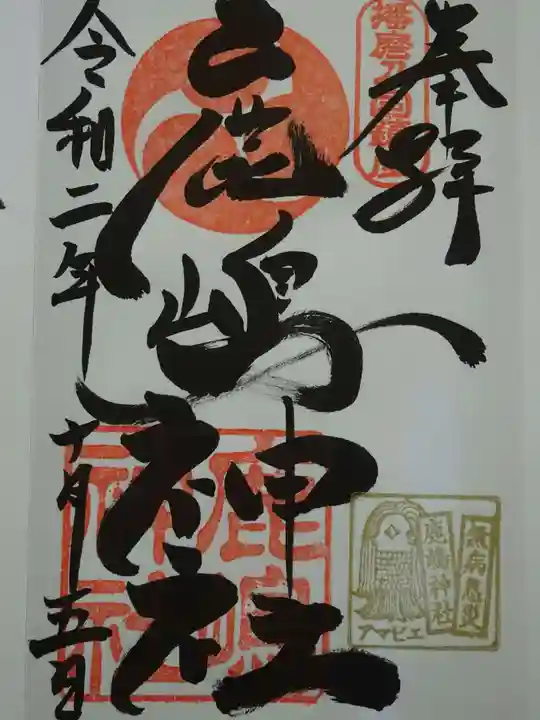 奉拝
播磨乃国鎮座
鹿嶋神社
鹿嶋神社
令和二年
十月十五日
無病息災
鹿嶋神社
アマビエ